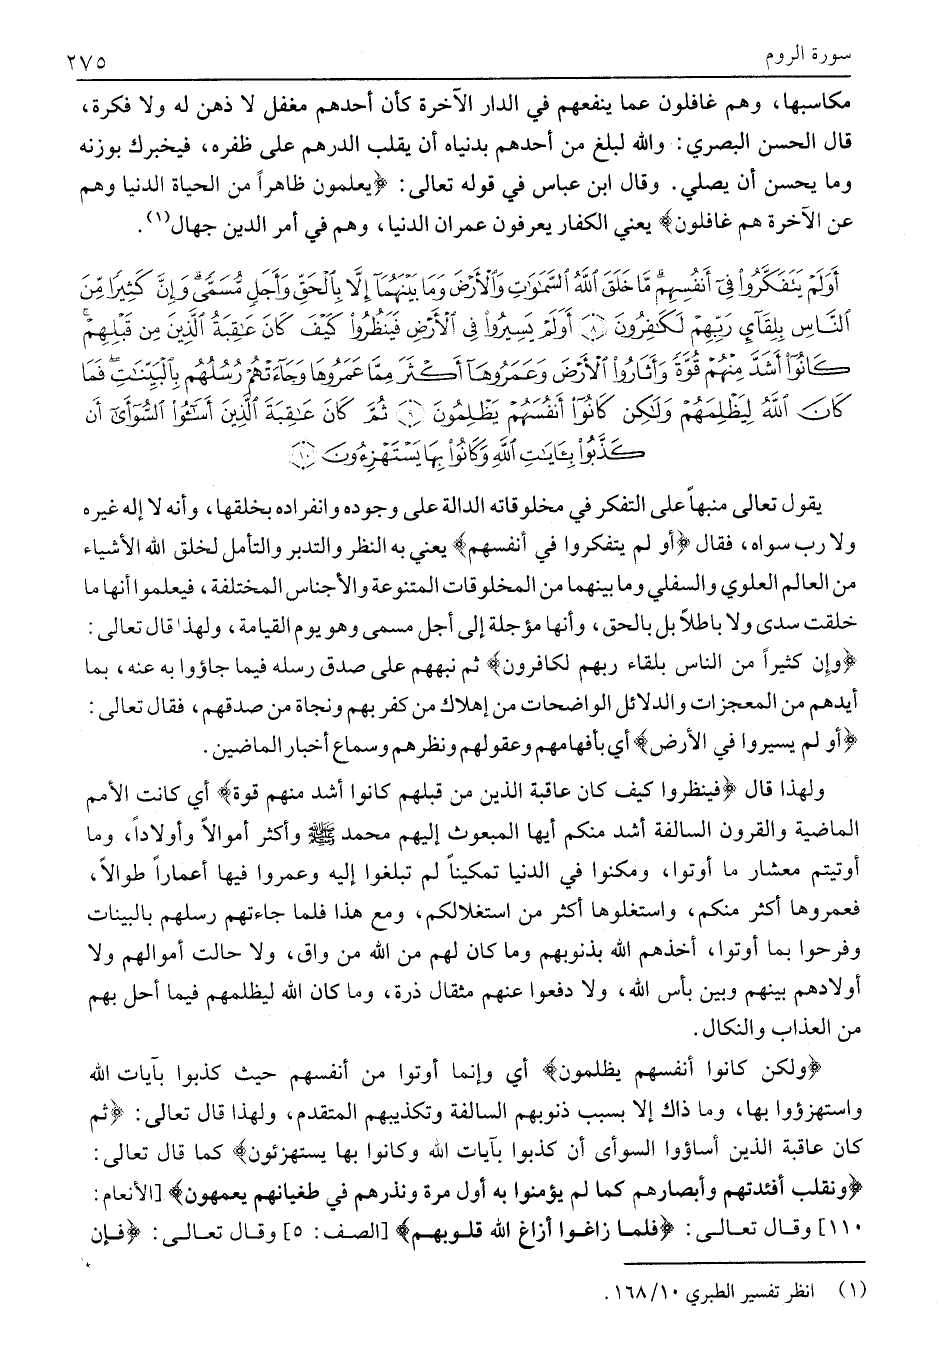 سورة الروم
٢٧٥
مكاسبها، وهم غافلون عما ينفعهم في الدار الآخرة كأن أحدهم مغفل لا ذهن له ولا فكرة،
قال الحسن البصري: والله لبلغ من أحدهم بدنياه أن يقلب الدرهم على ظفره، فيخبرك بوزنه
وما يحسن أن يصلي. وقال ابن عباس في قوله تعالى: ﴿يعلمون ظاهراً من الحياة الدنيا وهم
عن الآخرة هم غافلون﴾ يعني الكفار يعرفون عمران الدنيا، وهم في أمر الدين جهال(١).
أَوَلَمْ يَتَفَكَّرُوا۟ فِىٓ أَنفُسِهِم ۗ مَّا خَلَقَ ٱللَّهُ ٱلسَّمَـٰوَٰتِ وَٱلْأَرْضَ وَمَا بَيْنَهُمَآ إِلَّا بِٱلْحَقِّ وَأَجَلٍ مُّسَمًّى ۗ وَإِنَّ كَثِيرًا مِّنَ
ٱلنَّاسِ بِلِقَآئِ رَبِّهِمْ لَكَـٰفِرُونَ ﴿٨﴾ أَوَلَمْ يَسِيرُوا۟ فِى ٱلْأَرْضِ فَيَنظُرُوا۟ كَيْفَ كَانَ عَـٰقِبَةُ ٱلَّذِينَ مِن قَبْلِهِمْ ۚ
كَانُوٓا۟ أَشَدَّ مِنْهُمْ قُوَّةً وَأَثَارُوا۟ ٱلْأَرْضَ وَعَمَرُوهَآ أَكْثَرَ مِمَّا عَمَرُوهَا وَجَآءَتْهُمْ رُسُلُهُم بِٱلْبَيِّنَـٰتِ ۖ فَمَا
كَانَ ٱللَّهُ لِيَظْلِمَهُمْ وَلَـٰكِن كَانُوٓا۟ أَنفُسَهُمْ يَظْلِمُونَ ﴿٩﴾ ثُمَّ كَانَ عَـٰقِبَةَ ٱلَّذِينَ أَسَـٰٓـُٔوا۟ ٱلسُّوٓأَىٰٓ أَن
كَذَّبُوا۟ بِـَٔايَـٰتِ ٱللَّهِ وَكَانُوا۟ بِهَا يَسْتَهْزِءُونَ ﴿١٠﴾
يقول تعالى منبهاً على التفكر في مخلوقاته الدالة على وجوده وانفراده بخلقها، وأنه لا إله غيره
ولا رب سواه، فقال ﴿أو لم يتفكروا في أنفسهم﴾ يعني به النظر والتدبر والتأمل لخلق الله الأشياء
من العالم العلوي والسفلي وما بينهما من المخلوقات المتنوعة والأجناس المختلفة، فيعلموا أنها ما
خلقت سدى ولا باطلاً بل بالحق، وأنها مؤجلة إلى أجل مسمى وهو يوم القيامة، ولهذا قال تعالى:
﴿وإن كثيراً من الناس بلقاء ربهم لكافرون﴾ ثم نبههم على صدق رسله فيما جاؤوا به عنه، بما
أيدهم من المعجزات والدلائل الواضحات من إهلاك من كفر بهم ونجاة من صدقهم، فقال تعالى:
﴿أو لم يسيروا في الأرض﴾ أي بأفهامهم وعقولهم ونظرهم وسماع أخبار الماضين.
ولهذا قال ﴿فينظروا كيف كان عاقبة الذين من قبلهم كانوا أشد منهم قوة﴾ أي كانت الأمم
الماضية والقرون السالفة أشد منكم أيها المبعوث إليهم محمد ﷺ وأكثر أموالاً وأولاداً، وما
أوتيتم معشار ما أوتوا، ومكنوا في الدنيا تمكيناً لم تبلغوا إليه وعمروا فيها أعماراً طوالاً،
فعمروها أكثر منكم، واستغلوها أكثر من استغلالكم، ومع هذا فلما جاءتهم رسلهم بالبينات
وفرحوا بما أوتوا، أخذهم الله بذنوبهم وما كان لهم من الله من واق، ولا حالت أموالهم ولا
أولادهم بينهم وبين بأس الله، ولا دفعوا عنهم مثقال ذرة، وما كان الله ليظلمهم فيما أحل بهم
من العذاب والنكال.
﴿ولكن كانوا أنفسهم يظلمون﴾ أي وإنما أوتوا من أنفسهم حيث كذبوا بآيات الله
واستهزؤوا بها، وما ذاك إلا بسبب ذنوبهم السالفة وتكذيبهم المتقدم، ولهذا قال تعالى: ﴿ثم
كان عاقبة الذين أساؤوا السوأى أن كذبوا بآيات الله وكانوا بها يستهزئون﴾ كما قال تعالى:
﴿ونقلب أفئدتهم وأبصارهم كما لم يؤمنوا به أول مرة ونذرهم في طغيانهم يعمهون﴾ [الأنعام:
١١٠] وقال تعالى: ﴿فلما زاغوا أزاغ الله قلوبهم﴾ [الصف: ٥] وقال تعالى: ﴿فإن
(١) انظر تفسير الطبري ١٦٨/١٠.